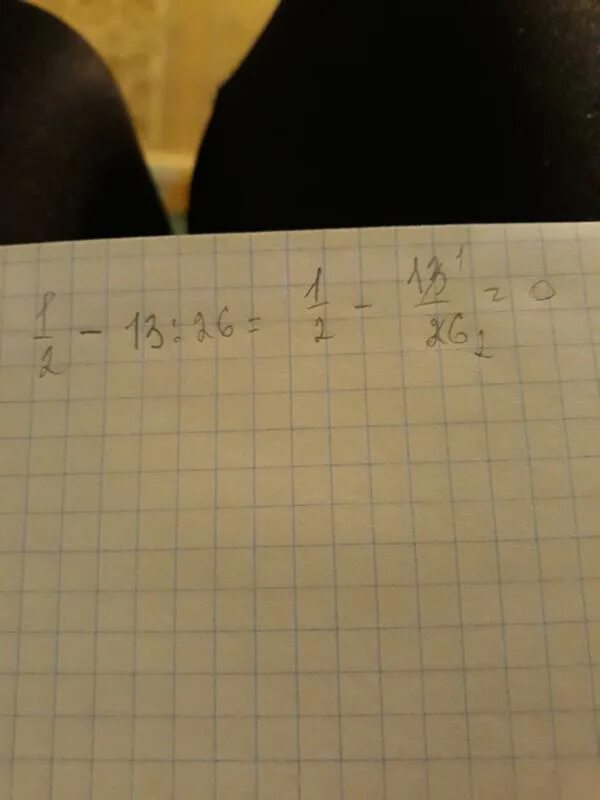 1/2 - 13:26 = 1/2 - 13¹/26₂ = 0